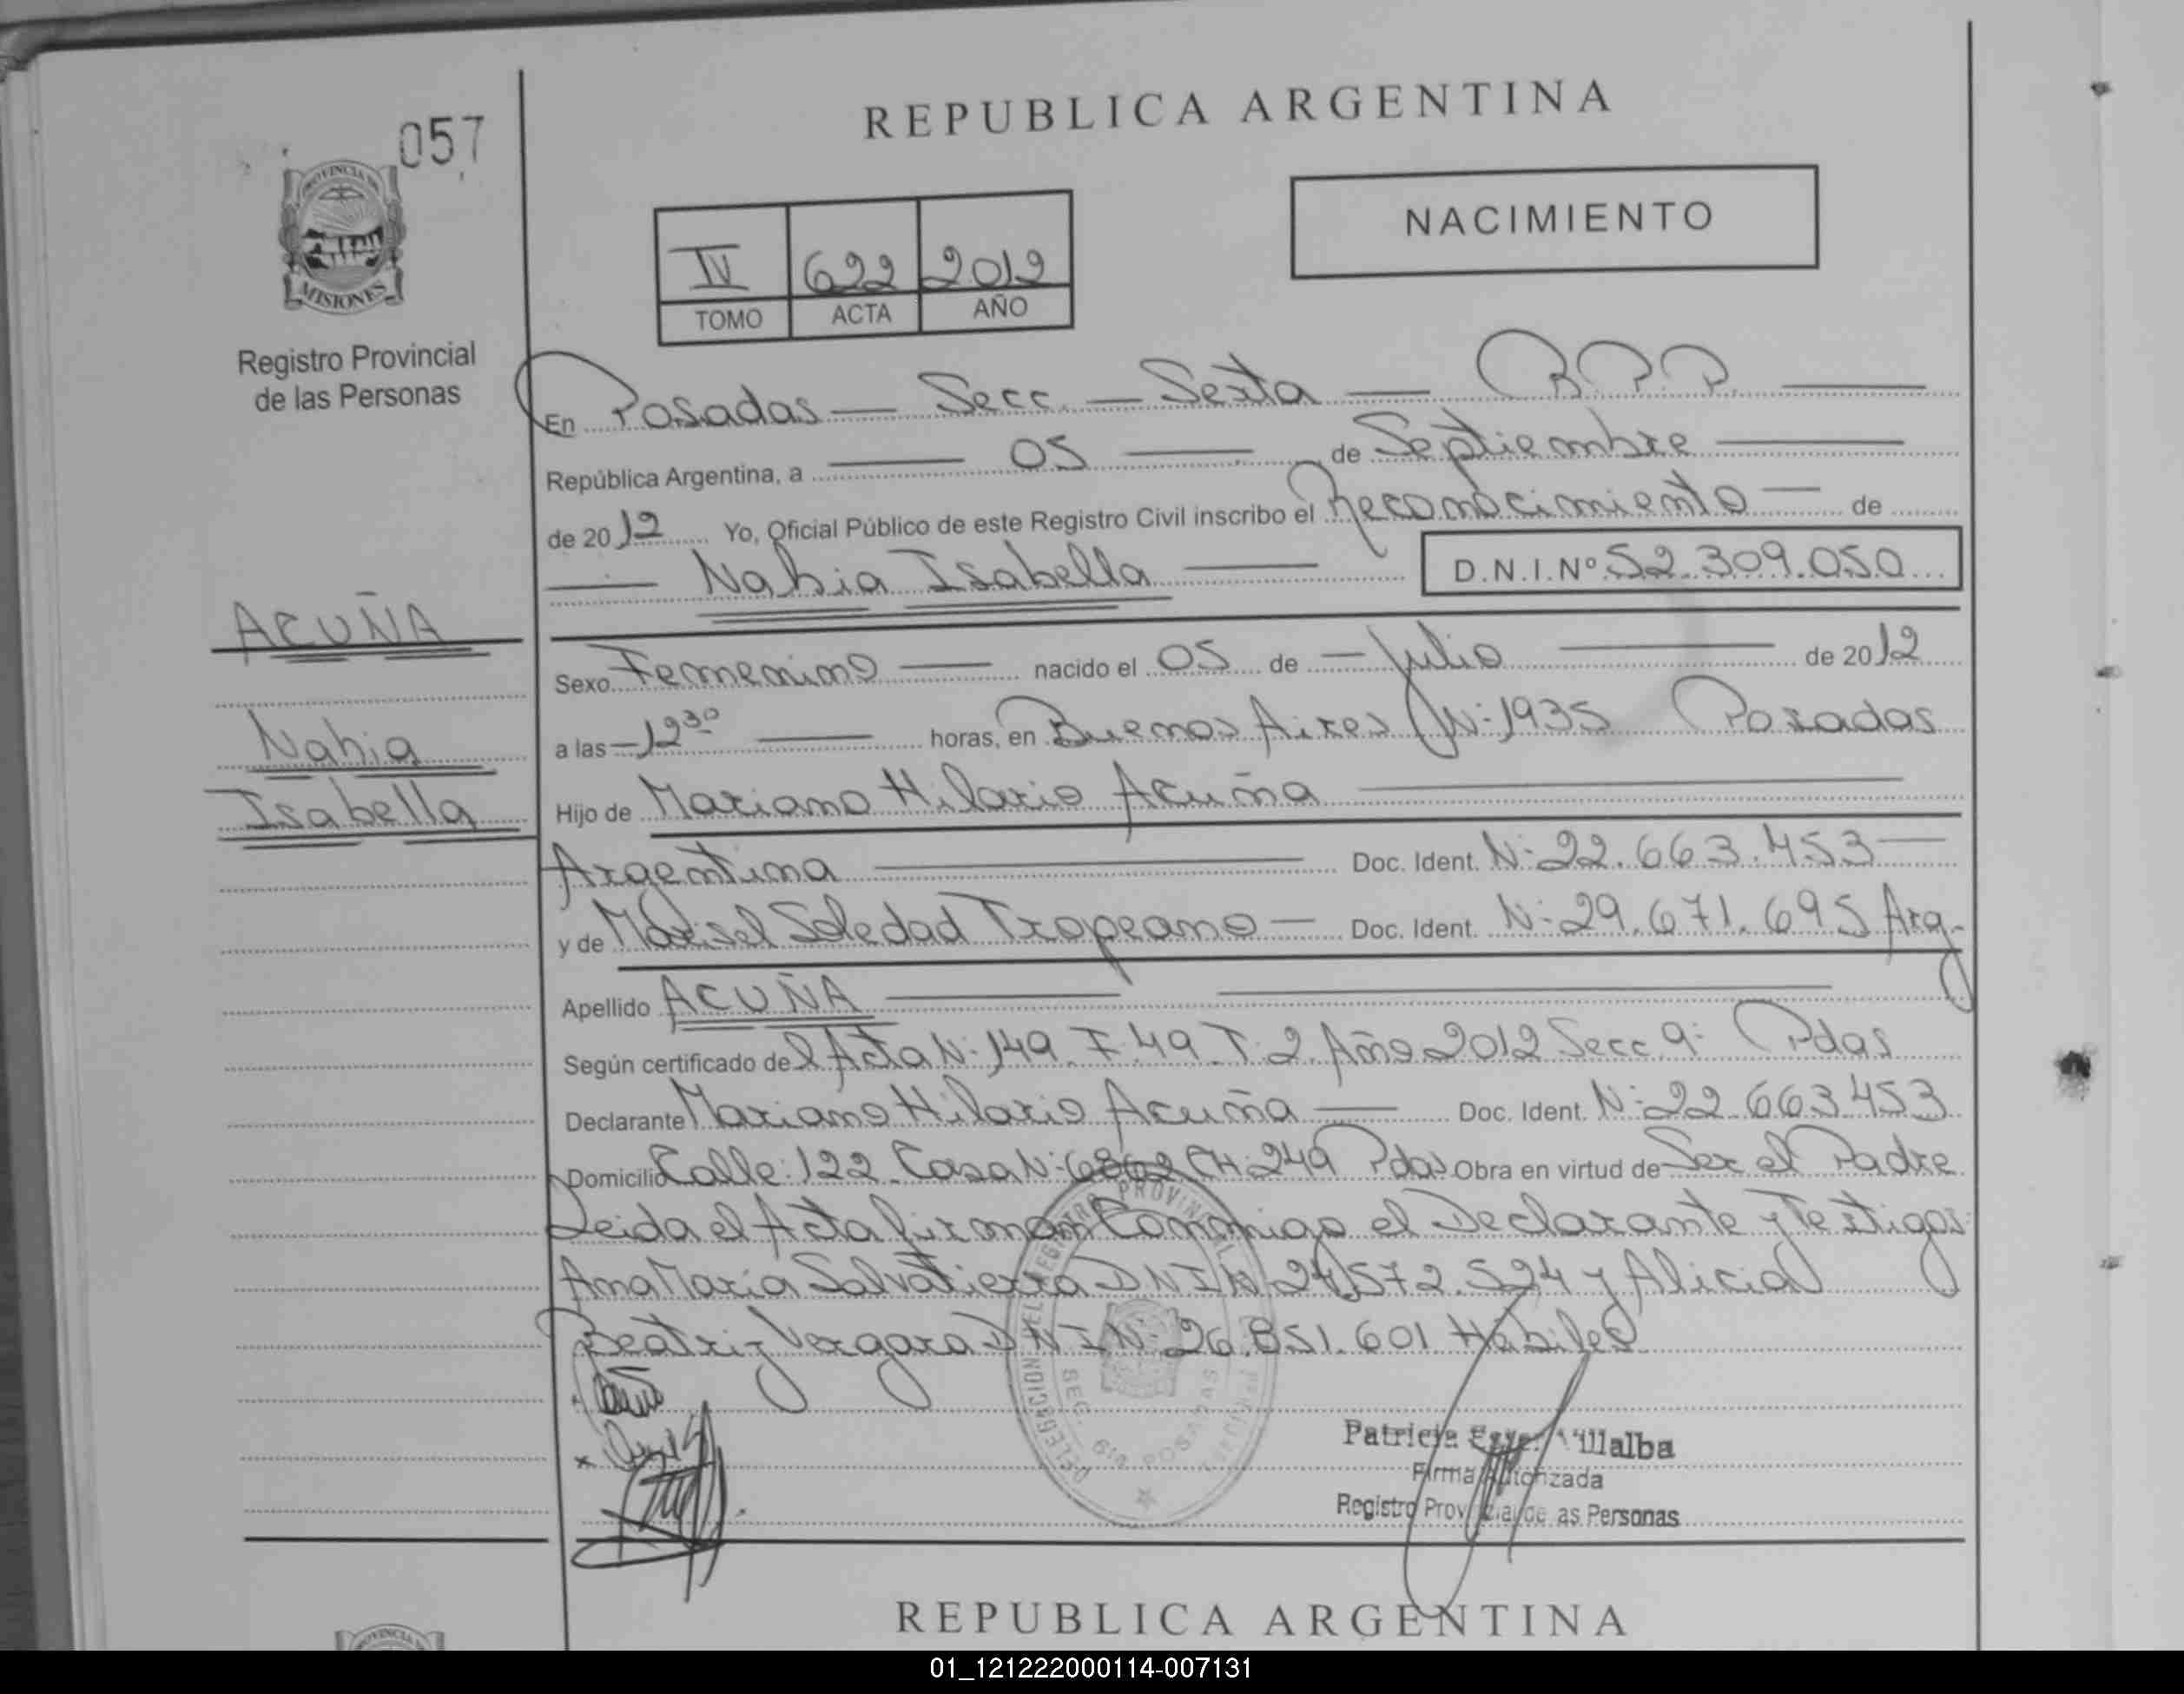 057
PROVINCIA DE
MISIONES
Registro Provincial
de las Personas
ACUÑA
Nahia
Isabella
REPUBLICA ARGENTINA
NACIMIENTO
IV 622 2012
TOMO ACTA AÑO
En Posadas — Secc. — Sexta — R.P.P. —
República Argentina, a — 05 — de Septiembre —
de 2012 Yo, Oficial Público de este Registro Civil inscribo el Reconocimiento — de
— Nahia Isabella — D.N.I.Nº 52.309.050
Sexo Femenino — nacido el 05 de — Julio — de 2012
a las — 12 30 — horas, en Buenos Aires N: 1935 Posadas
Hijo de Mariano Hilario Acuña —
Argentina — Doc. Ident. N: 22.663.453 —
y de Marisel Soledad Tropeano — Doc. Ident. N: 29.671.695 Arg.
Apellido ACUÑA —
Según certificado del Acta N: 149. F. 49. T. 2. Año 2012 Secc 9: Pdas
Declarante Mariano Hilario Acuña — Doc. Ident. N: 22 663 453
Domicilio Calle: 122. Casa N: 6862 CH. 249 Pdas Obra en virtud de Ser el Padre
Leida el Acta firman Conmigo el Declarante y Testigos
Ana Maria Salvatierra DNI N 24.572.524 y Alicia
Beatriz Vergara DNI N: 26.851.601 Hábiles
DELEGACION DEL REGISTRO PROVINCIAL
SEC. 6ta POSADAS
Patricia Villalba
Firma Autorizada
Registro Provincial de as Personas
REPUBLICA ARGENTINA
PROVINCIA
01_121222000114-007131